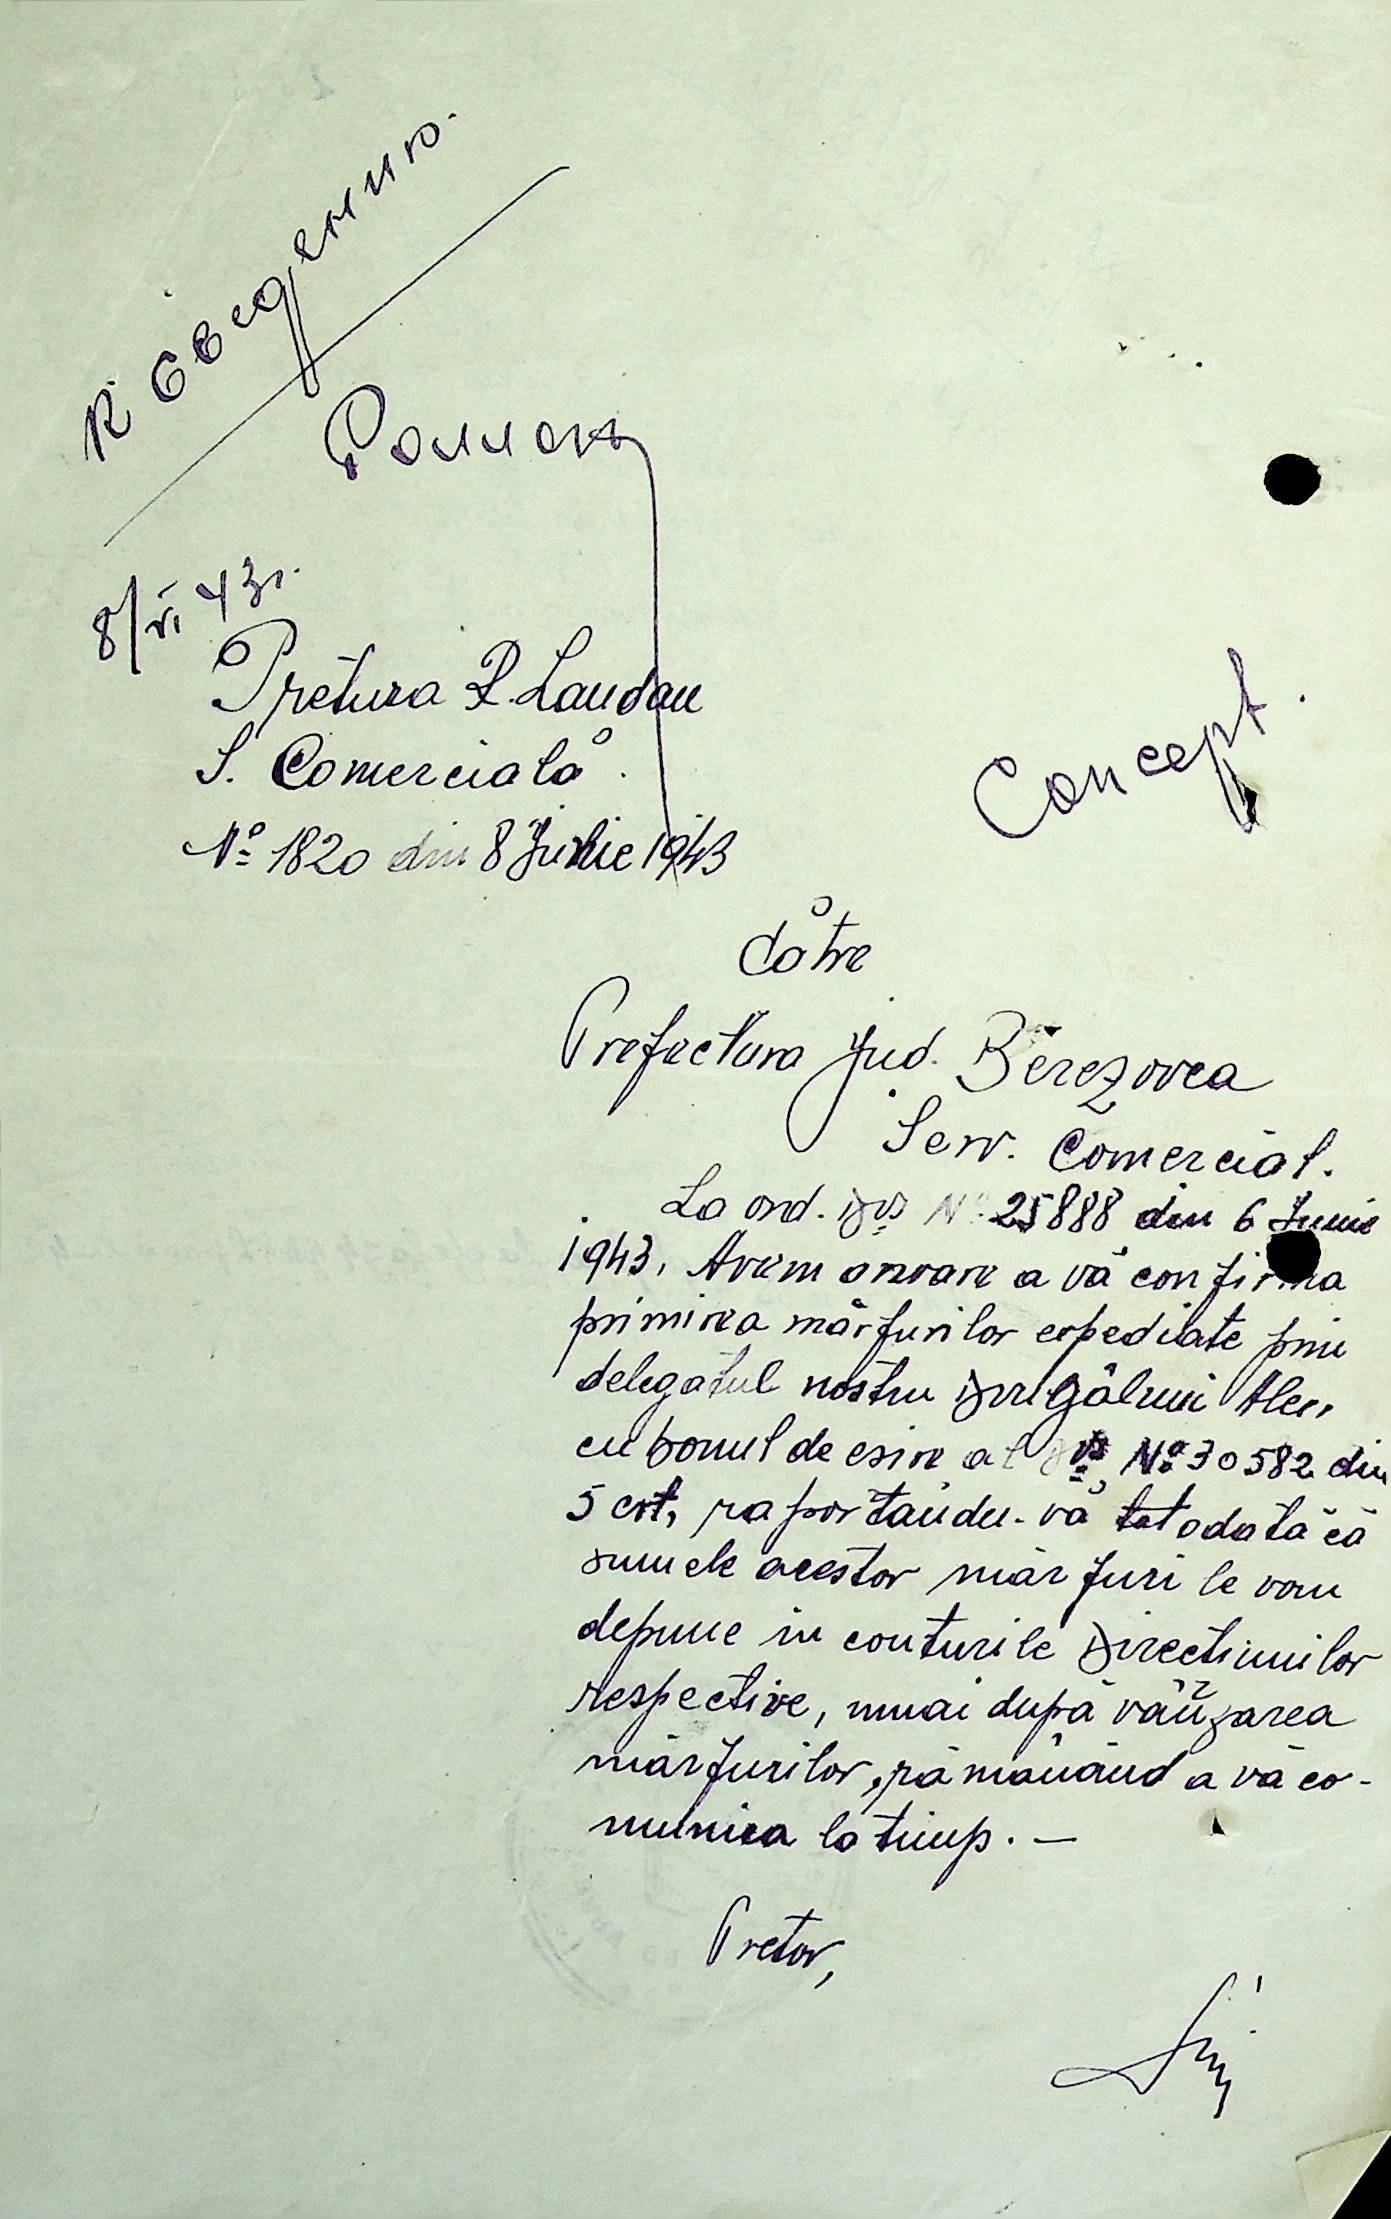 К сведению.
8/VI 43 г.
Pretura R. Landau
S. Comercială.
Nº 1820 din 8 Junie 1943
Concept.
Către
Prefectura Jud. Berezovca
Serv. Comercial.
La ord. Dvs Nº 25888 din 6 Junie
1943, Avem onoare a vă confirma
primirea mărfurilor expediate prin
delegatul nostru Alex,
cu bonul de esire al Dvs, Nº 30582 din
5 crt, raportându-vă totodată că
sumele acestor mărfuri le vom
depune in conturile Directiunilor
respective, numai după vânzarea
mărfurilor, rămânând a vă co-
munica la timp. —
Pretor,